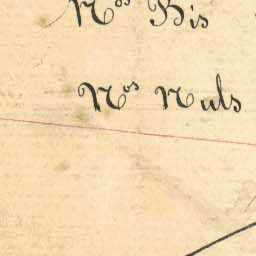 Nos Bis
Nos Nuls